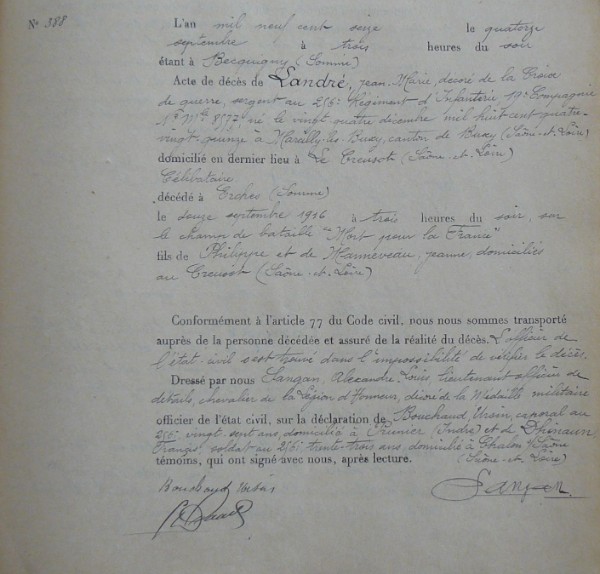 N° 388
L'an mil neuf cent seize le quatorze
septembre à trois heures du soir
étant à Becquigny (Somme)
Acte de décès de Landré, Jean-Marie, décoré de la Croix
de guerre, sergent au 256e Régiment d'Infanterie 19e Compagnie
N° Mle né le vingt quatre décembre mil huit cent quatre-
vingt quinze à Marcilly-les-Buxy, canton de Buxy (Saône-et-Loire)
domicilié en dernier lieu à Le Creusot (Saône-et-Loire)
Célibataire
décédé à Erches (Somme)
le douze septembre 1916 à trois heures du soir, sur
le champ de bataille "Mort pour la France"
fils de Philippe et de Jeanne, domiciliés
au Creusot (Saône-et-Loire)
Conformément à l'article 77 du Code civil, nous nous sommes transporté
auprès de la personne décédée et assuré de la réalité du décès. L'officier de
l'état-civil s'est trouvé dans l'impossibilité de vérifier le décès.
Dressé par nous Sangan, Alexandre, Louis, lieutenant officier de
détails, chevalier de la Légion d'Honneur, décoré de la Médaille militaire
officier de l'état civil, sur la déclaration de Bouchaud Ursin, caporal au
256e vingt-sept ans, domicilié à (Indre) et de
Francis, soldat au 256e trente-trois ans, domicilié à Chalon s/Saône
témoins, qui ont signé avec nous, après lecture. (Saône-et-Loire)
Bouchaud Ursin
Sangan